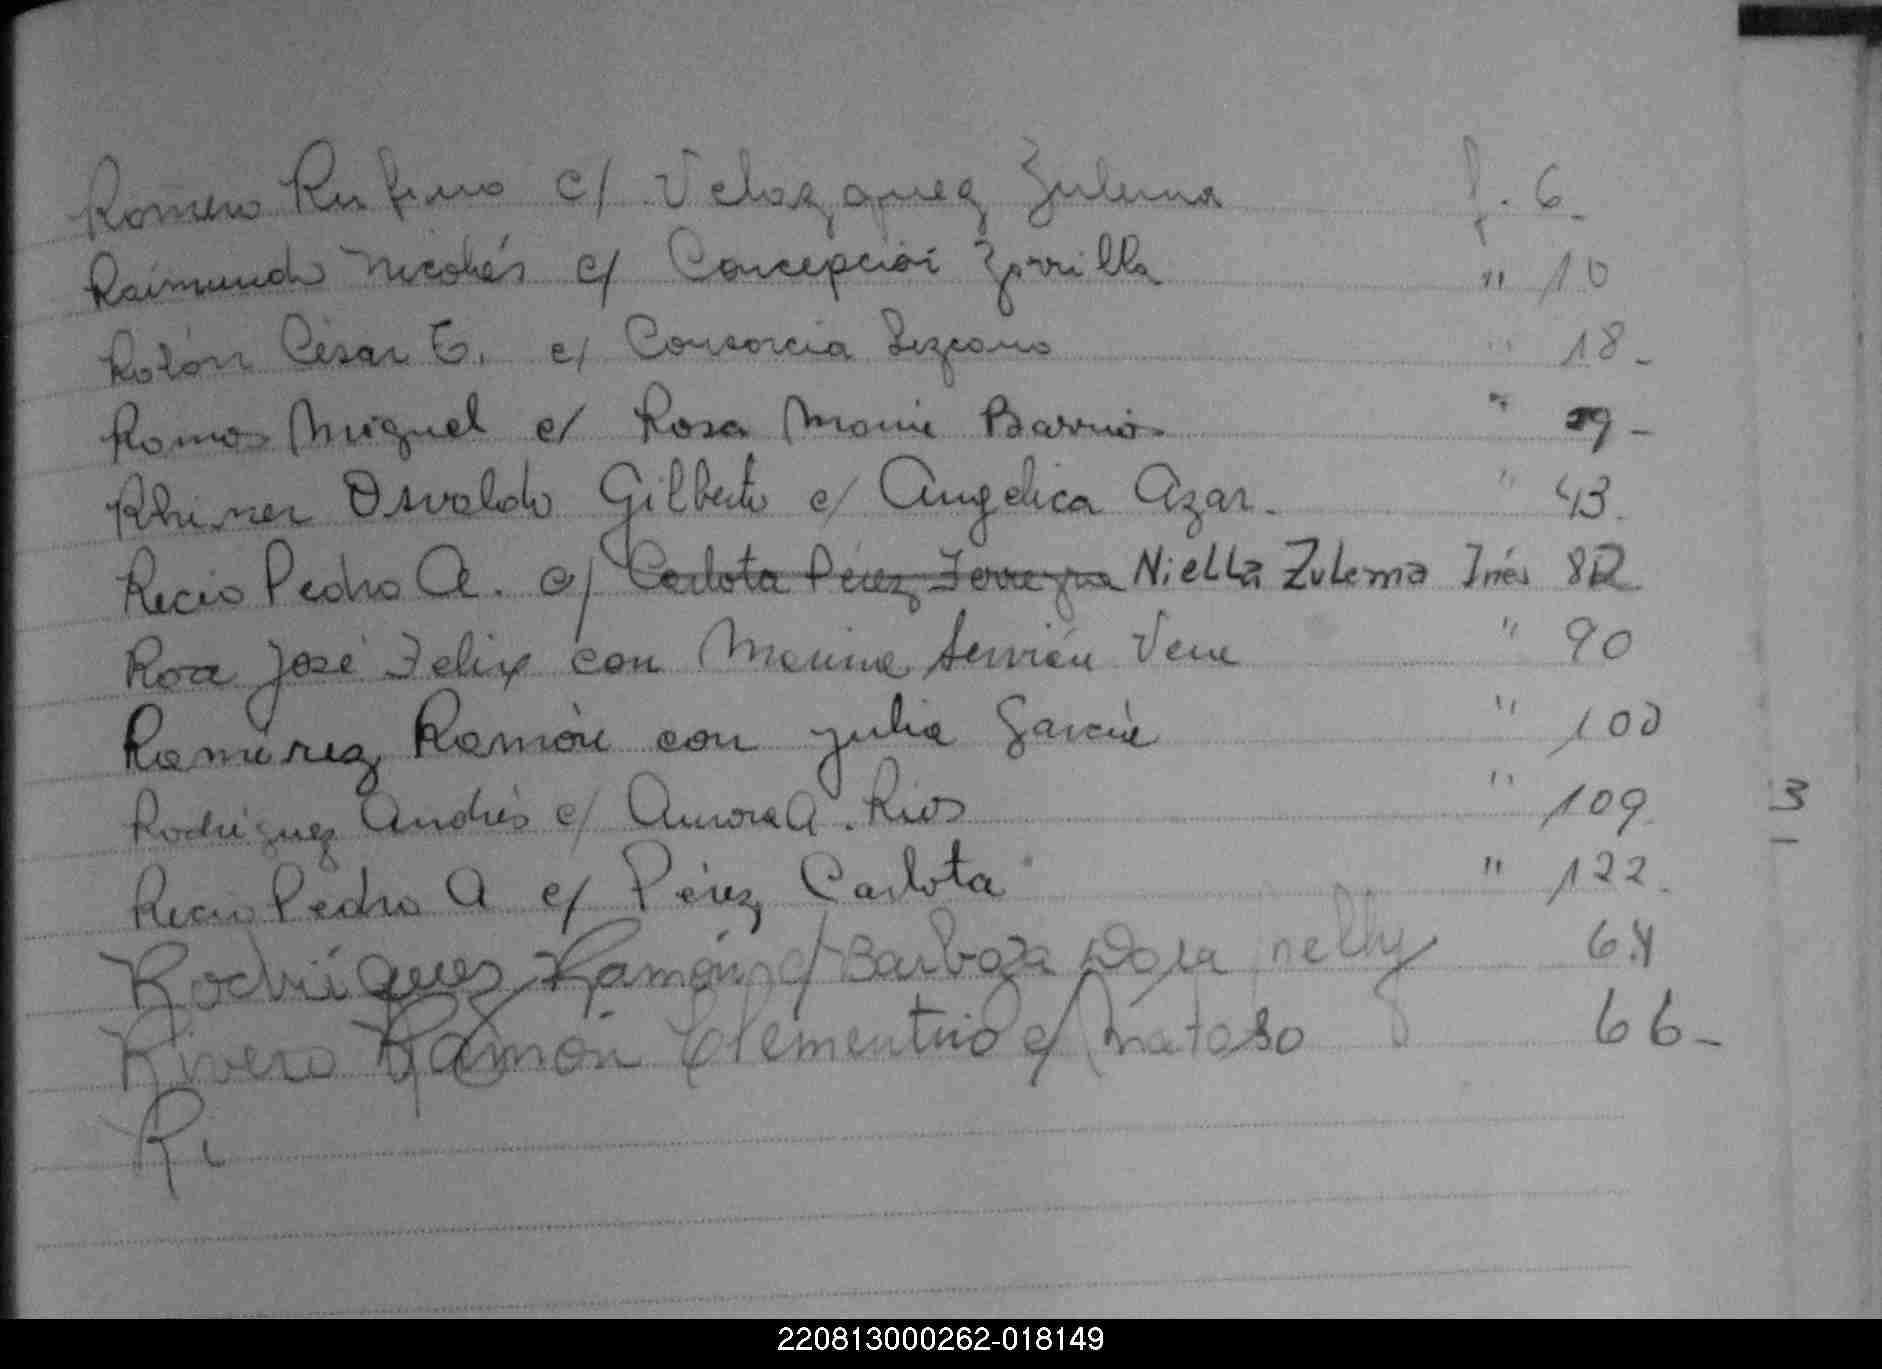 Romero Rufino c/ Velazquez Zulema f. 6-
Raimundo Nicolás c/ Concepción Zorrilla " 10
Rolón César E. c/ Consorcia Lezcano " 18-
Ramos Miguel c/ Rosa María Barrios " 29-
Rhiner Osvaldo Gilberto c/ Angélica Azar. " 43.
Recio Pedro A. c/ Carlota Pérez Ferreyra Niella Zulema Inés 82
Roa José Felix con Marina Servián Vera " 90
Ramírez Ramón con Julia García " 100
Rodríguez Andrés c/ Aurora A. Rios " 109
3
Recio Pedro A c/ Pérez Carlota " 122.
Rodrígues Ramón c/ Barboza Dora nelly 64
Rivero Ramón Clementino c/ Matoso 66-
Ri
220813000262-018149